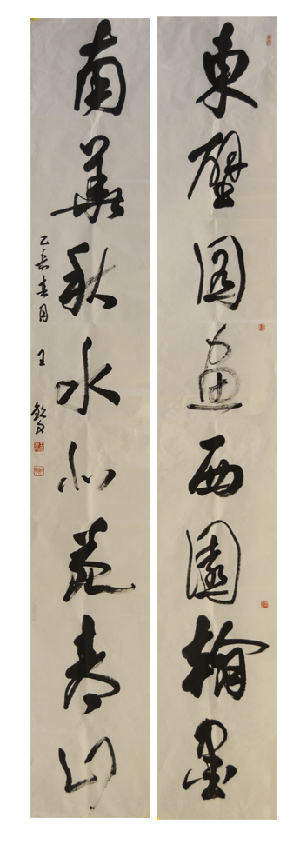 東壁圖畫西園翰墨
南華秋水北苑春山
乙未春月 王